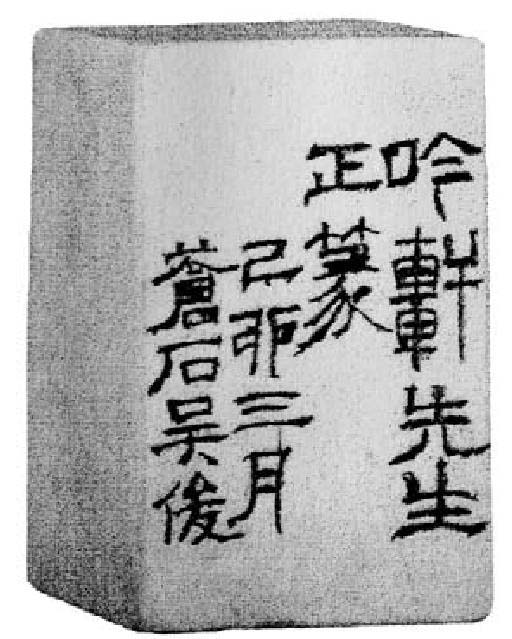 吟軒先生
正篆
己卯三月
蒼石吳俊